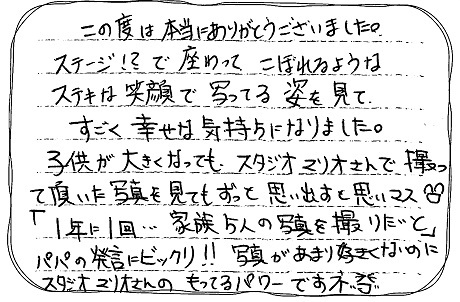 この度は本当にありがとうございました。
ステージ!?で座わって こぼれるような
ステキな笑顔で写ってる姿を見て
すごく幸せな気持ちになりました。
子供が大きくなっても スタジオマリオさんで撮っ
て頂いた写真を見てもずっと思い出すと思いマス
「1年に1回… 家族5人の写真を撮りたいと」
パパの発言にビックリ!! 写真があまり好きくないのに
スタジオマリオさんの もってるパワーですネ